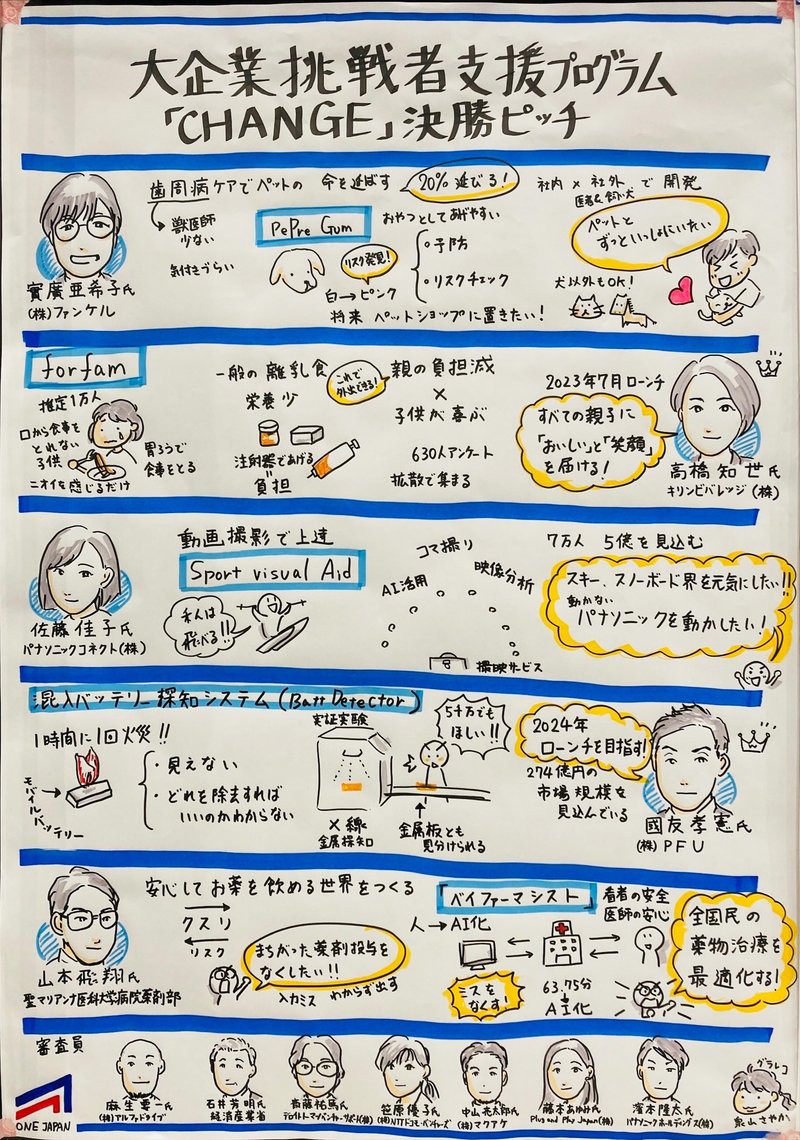 大企業挑戦者支援プログラム
「CHANGE」決勝ピッチ
歯周病ケアでペットの 命を延ばす
20% 延びる!
社内 × 社外 で 開発
医者&飼い犬
獣医師
少ない
気付きづらい
PePre Gum
おやつとしてあげやすい
リスク発見!
白→ピンク
・予防
・リスクチェック
将来 ペットショップに置きたい!
ペットと
ずっといっしょにいたい
犬以外もOK!
實廣亜希子氏
(株)ファンケル
forfam
推定1万人
口から食事を
とれない
子供
胃ろうで
食事をとる
ニオイを感じるだけ
一般の離乳食
栄養少
これで
外出できる!
注射器であげる
負担
親の負担減
×
子供が喜ぶ
630人アンケート
拡散で集まる
2023年7月ローンチ
すべての親子に
「おいしい」と「笑顔」
を届ける!
高橋知世氏
キリンビバレッジ(株)
動画撮影で上達
Sport visual Aid
そんは
飛べる!!
AI活用
コマ撮り
映像分析
撮映サービス
7万人 5億を見込む
スキー、スノーボード界を元気にしたい!!
動かない
パナソニックを動かしたい!
佐藤佳子氏
パナソニックコネクト(株)
混入バッテリー探知システム(Batt Detector)
1時間に1回火災!!
モバイル
バッテリー
・見えない
・どれを除去すれば
いいのかわからない
実証実験
X線
金属探知
5千万でも
ほしい!!
金属板とも
見分けられる
2024年
ローンチを目指す!
274億円の
市場規模を
見込んでいる
國友孝憲氏
(株)PFU
安心してお薬を飲める世界をつくる
クスリ
リスク
まちがった薬剤投与を
なくしたい!!
入力ミス わからず出す
「ベイファーマシスト」
人→AI化
ミスを
なくす!
63.75分
AI化
看者の安全
医師の安心
全国民の
薬物治療を
最適化する!
山本飛翔氏
聖マリアンナ医科大学病院薬剤部
審査員
麻生要一氏
(株)アルファドライブ
石井芳明氏
経済産業省
斎藤祐馬氏
デロイトトーマツベンチャーサポート(株)
笹原優子氏
(株)NTTドコモ・ベンチャーズ
中山亮太郎氏
(株)マクアケ
藤本あゆみ氏
Plug and Play Japan(株)
濱本隆太氏
パナソニックホールディングス(株)
グラレコ
さやか
ONE JAPAN